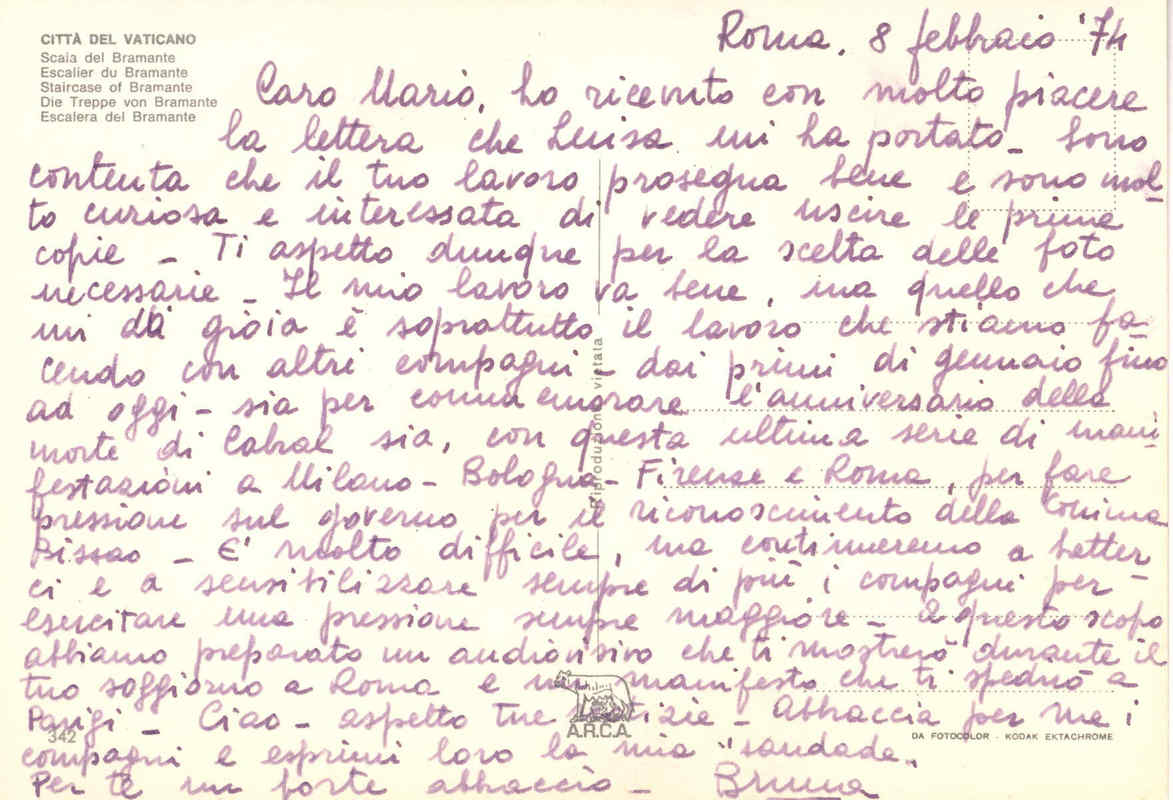 CITTÀ DEL VATICANO
Scala del Bramante
Escalier du Bramante
Staircase of Bramante
Die Treppe von Bramante
Escalera del Bramante
Roma, 8 febbraio '74
Caro Mario, ho ricevuto con molto piacere
la lettera che Luisa mi ha portato – Sono
contenta che il tuo lavoro prosegua bene e sono mol-
to curiosa e interessata di vedere uscire le prime
copie – Ti aspetto dunque per la scelta delle foto
necessarie – Il mio lavoro va bene, ma quello che
mi dà gioia è soprattutto il lavoro che stiamo fa-
cendo con altri compagni – dai primi di gennaio fino
ad oggi – sia per commemorare l'anniversario della
morte di Cabral sia, con questa ultima serie di mani-
festazioni a Milano – Bologna – Firenze e Roma, per fare
pressione sul governo per il riconoscimento della Guinea
Bissao – E' molto difficile, ma continueremo a batter-
ci e a sensibilizzare sempre di più i compagni per
esercitare una pressione sempre maggiore – A questo scopo
abbiamo preparato un audiovisivo che ti mostrerò durante il
tuo soggiorno a Roma e un manifesto che ti spedirò a
Parigi – Ciao – aspetto tue notizie – Abbraccia per me i
compagni e esprimi loro la mia "saudade"
Per te un forte abbraccio – Bruna
Riproduzione vietata
A.R.C.A.
342
DA FOTOCOLOR - KODAK EKTACHROME